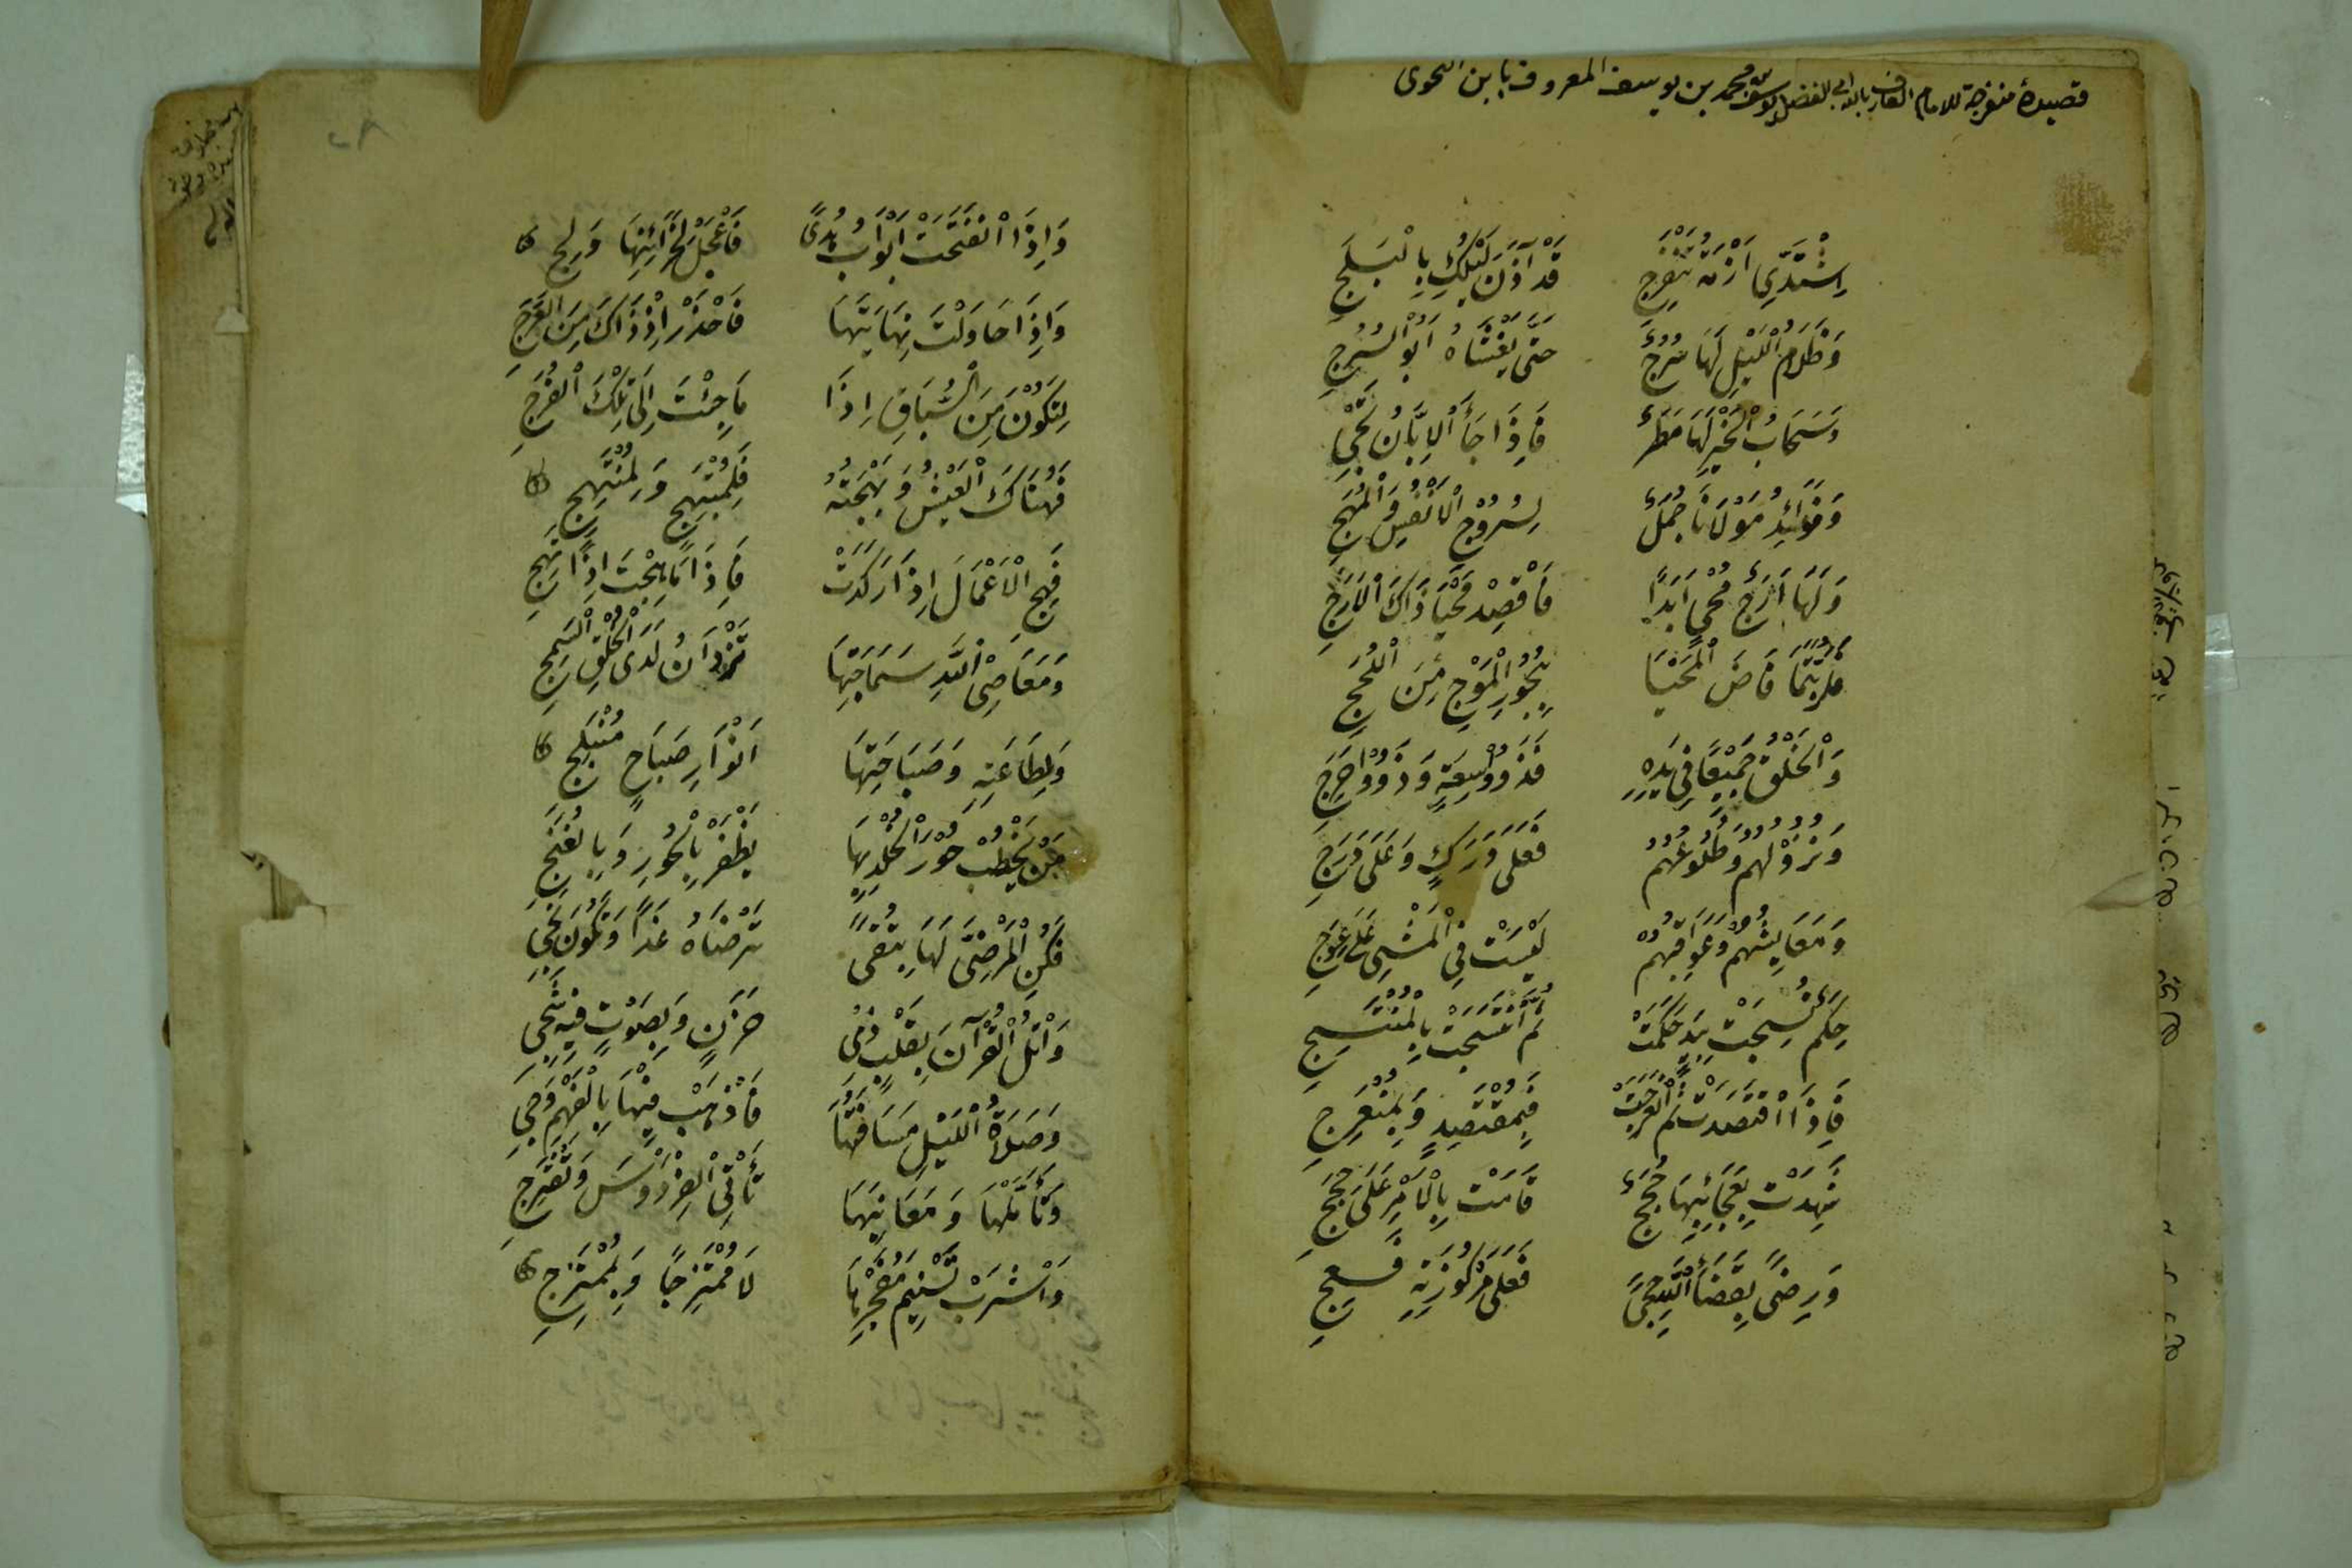 قصيدهٔ منفرجة للامام العارف بالله ابى الفضل يوسف بن محمد بن يوسف المعروف بابن النحوى
اِشْتَدِّي اَزْمَةُ تَنْفَرِجِ قَدْ آذَنَ لَيْلُكِ بِالْبَلَجِ
وَظَلَامُ اللَّيْلِ لَهَا سُرُجٌ حَتّٰى يَغْشَاهُ اَبُو السُّرُجِ
وَسَحَابُ الْخَيْرِ لَهَا مَطَرٌ فَاِذَا جَآءَ الْاِبَّانُ تَجِي
وَفَوَائِدُ مَوْلَانَا جُمَلٌ لِسُرُوْجِ الْاَنْفُسِ وَالْمُهَجِ
وَلَهَا اَرَجٌ مُحْيٍ اَبَدًا فَاقْصِدْ مَحْيَا ذَاكَ الْاَرَجِ
فَلَرُبَّتَمَا فَاضَ الْمَحْيَا بِبُحُورِ الْمَوْجِ مِنَ اللُّجَجِ
وَالْخَلْقُ جَمِيْعًا فِي يَدِهِ فَذَوُوْ سِعَةٍ وَذَوُوْ حَرَجِ
وَنُزُوْلُهُمُ وَطُلُوعُهُمُ فَعَلٰى دَرَكٍ وَعَلٰى دَرَجِ
وَمَعَايِشُهُمْ وَعَوَاقِبُهُمْ لَيْسَتْ فِي الْمَشْيِ عَلٰى عِوَجِ
حِكَمٌ نُسِجَتْ بِيَدٍ حَكَمَتْ ثُمَّ انْتَسَجَتْ بِالْمُنْتَسِجِ
فَاِذَا اقْتَصَدَتْ ثُمَّ انْعَرَجَتْ فَبِمُقْتَصِدٍ وَبِمُنْعَرِجِ
شَهِدَتْ بِعَجَائِبِهَا حُجَجٌ قَامَتْ بِالْاَمْرِ عَلَى حُجَجِ
وَرِضًى بِقَضَآءِ اللّٰهِ حِجًى فَعَلٰى مَرْكُوْزَتِهِ فَعُجِ
وَاِذَا انْفَتَحَتْ اَبْوَابُ هُدًى فَاعْجَلْ لِخَزَائِنِهَا وَلِجِ
وَاِذَا حَاوَلْتَ نِهَايَتَهَا فَاحْذَرْ اِذْ ذَاكَ مِنَ الْعَرَجِ
لِتَكُوْنَ مِنَ السُّبَّاقِ اِذَا مَا جِئْتَ اِلٰى تِلْكَ الْفُرَجِ
فَهُنَاكَ الْعَيْشُ وَبَهْجَتُهُ فَلِمُبْتَهِجٍ وَلِمُنْتَهِجِ
فَهِجِ الْاَعْمَالَ اِذَا رَكَدَتْ فَاِذَا مَا هِجْتَ اِذًا تَهِجِ
وَمَعَاصِى اللّٰهِ سَمَاجَتُهَا تَزْدَانُ لَدَى الْخُلُقِ السَّمِجِ
وَلِطَاعَتِهِ وَصَبَاحَتِهَا اَنْوَارُ صَبَاحٍ مُنْبَلِجِ
مَنْ يَخْطُبْ حُوْرَ الْخُلْدِ بِهَا يَظْفَرْ بِالْحُورِ وَبِالْغُنَجِ
فَكُنِ الْمَرْضِيَّ لَهَا بِتُقًى تَرْضَاهُ غَدًا وَتَكُوْنَ نَجِي
وَاتْلُ الْقُرْآنَ بِقَلْبٍ ذِي حَزَنٍ وَبِصَوْتٍ فِيْهِ شَجِي
وَصَلٰوةُ اللَّيْلِ مَسَافَتُهَا فَاذْهَبْ فِيْهَا بِالْفَهْمِ وَجِي
وَتَأَمَّلْهَا وَمَعَانِيَهَا تَأْتِي الْفِرْدَوْسَ وَتَفْتَرِجِ
وَاشْرَبْ تَسْنِيْمَ مُفَجَّرِهَا لَا مُمْتَزِجًا وَبِمُمْتَزِجِ